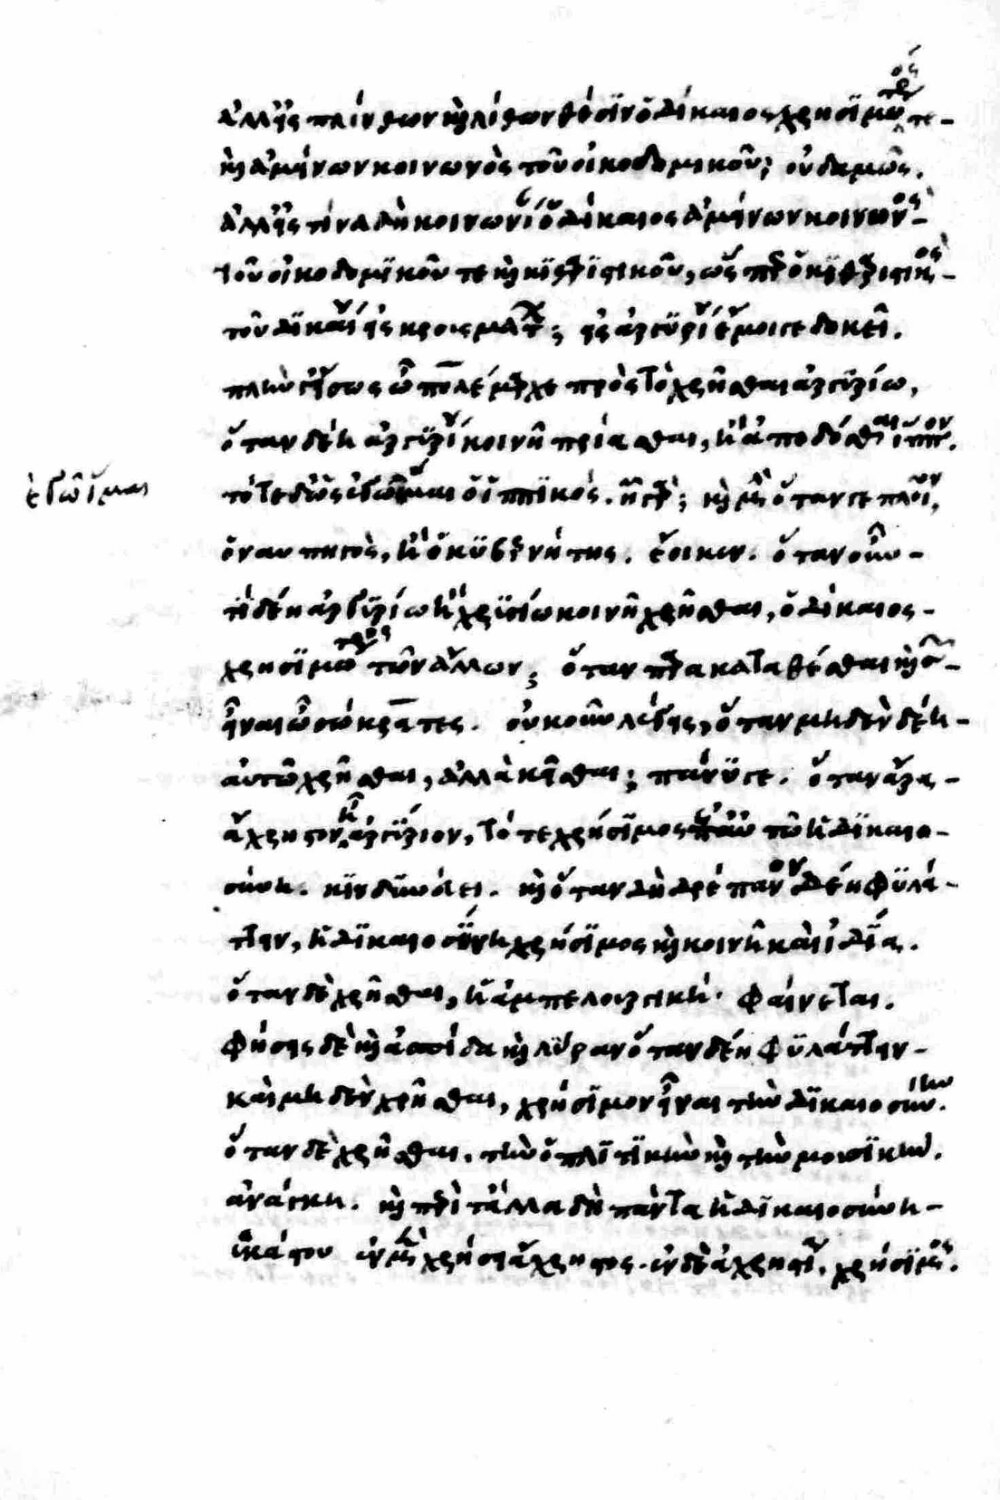 ἀλλ' εἰς πλίνθων καὶ λίθων θέσιν ὁ δίκαιος χρησιμώτερός τε
καὶ ἀμείνων κοινωνὸς τοῦ οἰκοδομικοῦ; οὐδαμῶς.
ἀλλ' εἰς τίνα δὴ κοινωνίαν ὁ δίκαιος ἀμείνων κοινωνὸς
τοῦ οἰκοδομικοῦ τε καὶ κιθαριστικοῦ, ὥσπερ ὁ κιθαριστικὸς
τοῦ δικαίου εἰς κρουμάτων; εἰς ἀργυρίου ἔμοιγε δοκεῖ.
πλήν γ' ἴσως ὦ πολέμαρχε πρὸς τὸ χρῆσθαι ἀργυρίω,
ὅταν δέη ἀργυρίου κοινῆ πρίασθαι, ἢ ἀποδόσθαι ἵππον.
ἐγῷμαι
τότε δ' ὡς ἐγῷμαι ὁ ἱππικός. ἦ γάρ; καὶ μὴν ὅταν γε πλοῖον,
ὁ ναυπηγὸς, ἢ ὁ κυβερνήτης. ἔοικεν. ὅταν οὖν
τί δέη ἀργυρίω ἢ χρυσίω κοινῆ χρῆσθαι, ὁ δίκαιος
χρησιμώτερος τῶν ἄλλων; ὅταν παρακαταθέσθαι καὶ σῶν
εἶναι ὦ σώκρατες. οὐκοῦν λέγεις, ὅταν μηδὲν δέη
αὐτῶ χρῆσθαι, ἀλλὰ κεῖσθαι; πάνυ γε. ὅταν ἄρα
ἄχρηστον ἦ ἀργύριον, τότε χρήσιμος ἐπ' αὐτῶ ἡ δικαιο
σύνη. κινδυνεύει. καὶ ὅταν δὴ δρέπανον δέη φυλά
ττειν, ἡ δικαιοσύνη χρήσιμος καὶ κοινῆ καὶ ἰδία.
ὅταν δὲ χρῆσθαι, ἡ ἀμπελουργική. φαίνεται.
φήσεις δὲ καὶ ἀσπίδα καὶ λύραν ὅταν δέη φυλάττειν
καὶ μηδὲν χρῆσθαι, χρήσιμον εἶναι τὴν δικαιοσύνην.
ὅταν δὲ χρῆσθαι, τὴν ὁπλιτικὴν καὶ τὴν μουσικήν.
ἀνάγκη. καὶ περὶ τἆλλα δὴ πάντα ἡ δικαιοσύνη
ἑκάστου ἐν μὲν χρήσει ἄχρηστος. ἐν δὲ ἀχρηστία, χρήσιμος.